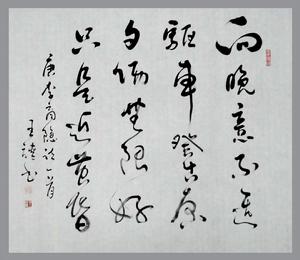 向晚意不適
驅車登古原
夕陽無限好
只是近黄昏
唐李商隱詩一首
王 書